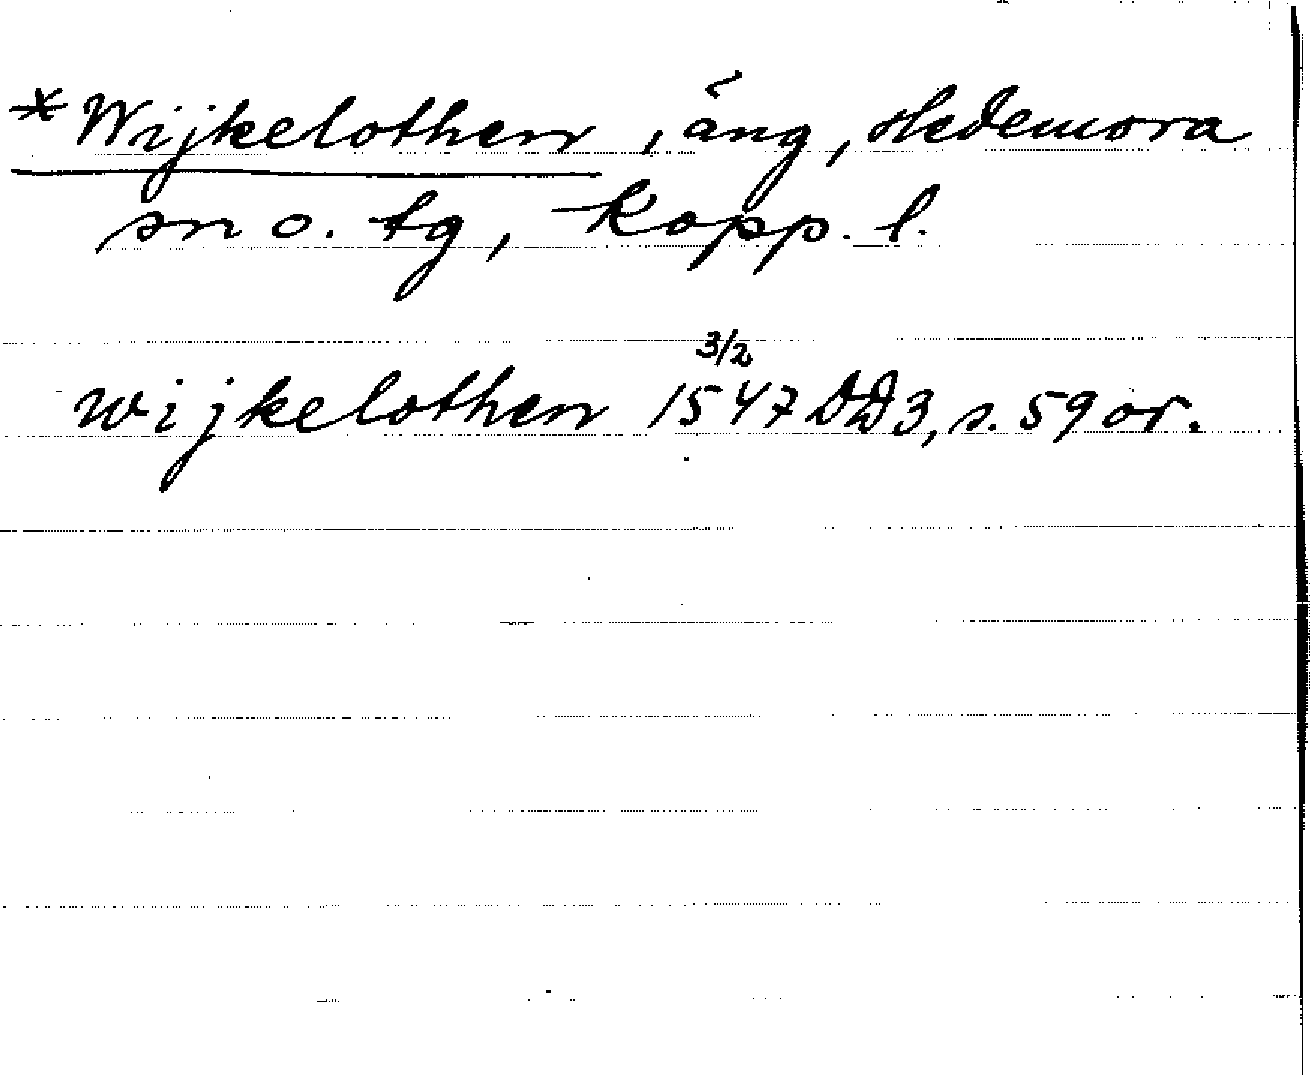 *Wijkelothen, äng, Hedemora
sn o. tg, Kopp. l.
wijkelothen 3/2 1547 DD3, s. 59 or.